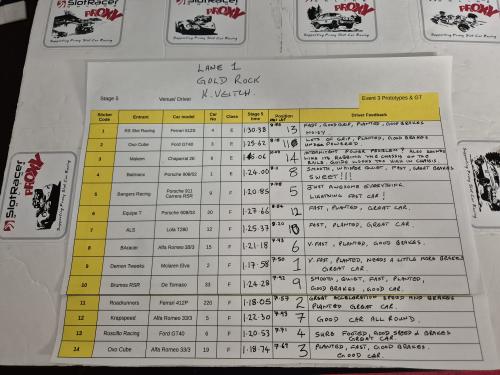 SlotRacer
PROXY
Supporting Proxy Slot Car Racing
LANE 1
GOLD ROCK
K. VEITCH.
Stage 5 Venue/ Driver Event 3 Prototypes & GT
Sticker Code Entrant Car model Car No Class Stage 5 time Position Driver Feedback
1 RS Slot Racing Ferrari 512S 4 E 1·30·38 13 FAST, GOOD GRIP, PLANTED, GOOD BRAKES NOISY
2 Oxo Cube Ford GT40 3 E 1·25·62 LOTS OF GRIP, PLANTED, GOOD BRAKES UNDER POWERED.
3 Makem Chaparral 2E 8 E 14 INTERMITENT POWER PROBLEM?
4 Batmanx Porsche 908/02 1 E 1·24·00 8 SMOOTH, SUPER QUIET, FAST, GREAT BRAKES SWEET!!!
5 Sangers Racing Porsche 911 Carrera RSR 9 F 1·20·85 5 JUST AWESOME EVERYTHING LIGHTNING FAST CAR!
6 Equipe T Porsche 908/03 20 F 1·27·66 12 FAST, PLANTED, GREAT CAR.
7 ALS Lola T280 12 F 1·25·37 FAST, PLANTED, GREAT CAR.
8 BAracer Alfa Romeo 33/3 15 F 1·21·18 6 V.FAST, PLANTED, GOOD BRAKES.
9 Demon Tweeks Mclaren Elva 2 F 1·17·58 7·50 1 V.FAST, PLANTED, NEEDS A LITTLE MORE BRAKES GREAT CAR.
10 Brumos RSR De Tomaso 33 F 1·24·28 7·92 9 SMOOTH, QUIET, FAST, PLANTED, GOOD BRAKES, GOOD CAR.
11 Roadrunners Ferrari 412P 226 F 1·18·05 7·57 2 GREAT ACCELERATION SPEED AND BRAKES PLANTED GREAT CAR.
12 Krapspeed Alfa Romeo 33/3 5 F 1·22·30 7 GOOD CAR ALL ROUND.
13 Roscillo Racing Ford GT40 6 F 1·20·53 7·71 4 SURE FOOTED, GOOD SPEED & BRAKES GREAT CAR.
14 Oxo Cube Alfa Romeo 33/3 19 F 1·18·74 7·69 3 PLANTED, FAST, GOOD BRAKES. GOOD CAR.